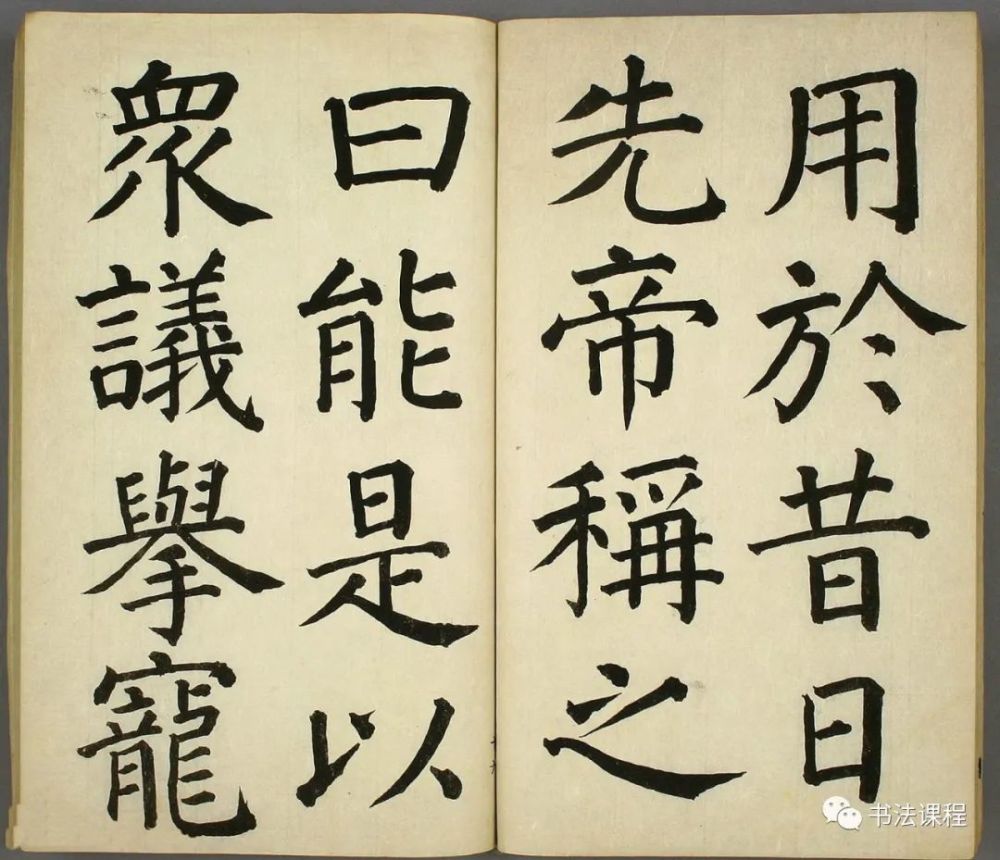 用於昔日
先帝稱之
曰能是以
衆議擧寵
书法课程